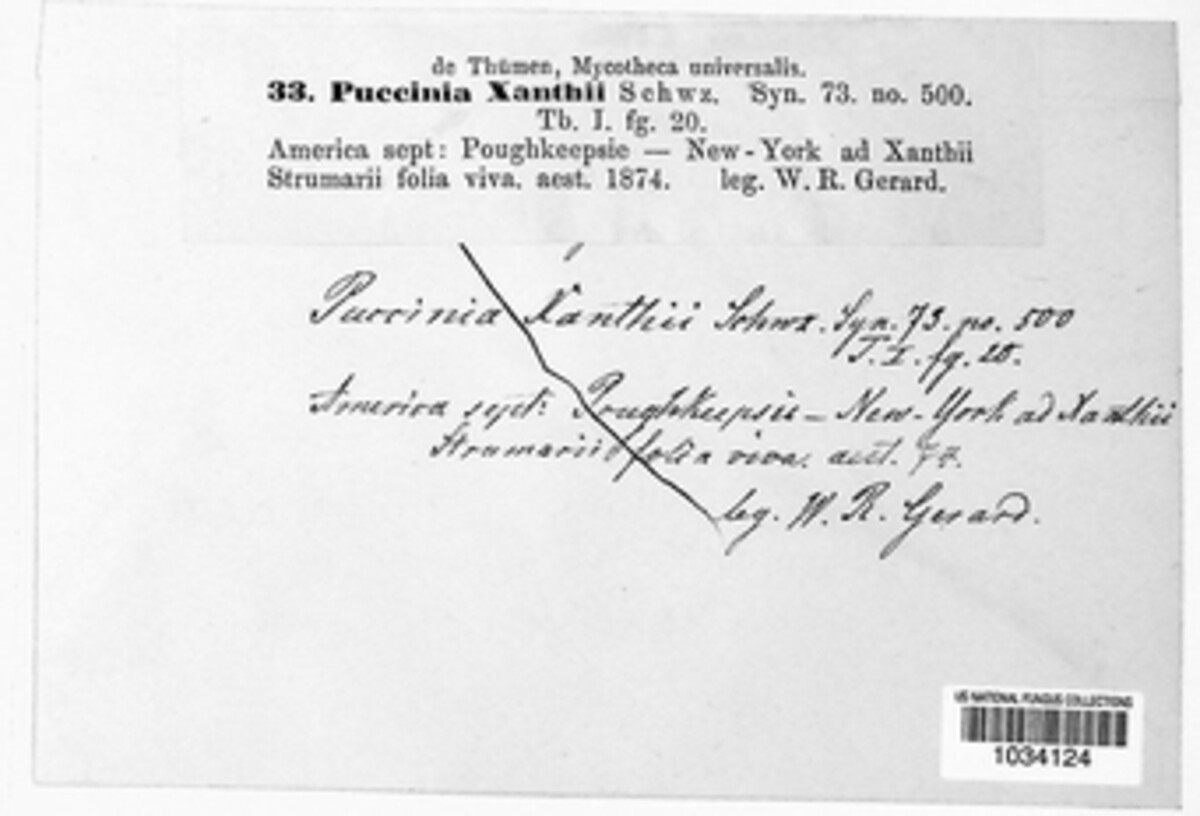 de Thümen, Mycotheca universalis.
33. Puccinia Xanthii Schwz. Syn. 73. no. 500.
Tb. I. fg. 20.
America sept: Poughkeepsie — New-York ad Xanthii
Strumarii folia viva. aest. 1874. leg. W. R. Gerard.
Puccinia Xanthii Schwz. Syn. 73. no. 500
T. I. fg. 20.
America sept: Poughkeepsie – New-York ad Xanthii
Strumarii folia viva. aest. 74.
leg. W. R. Gerard.
US NATIONAL FUNGUS COLLECTIONS
1034124